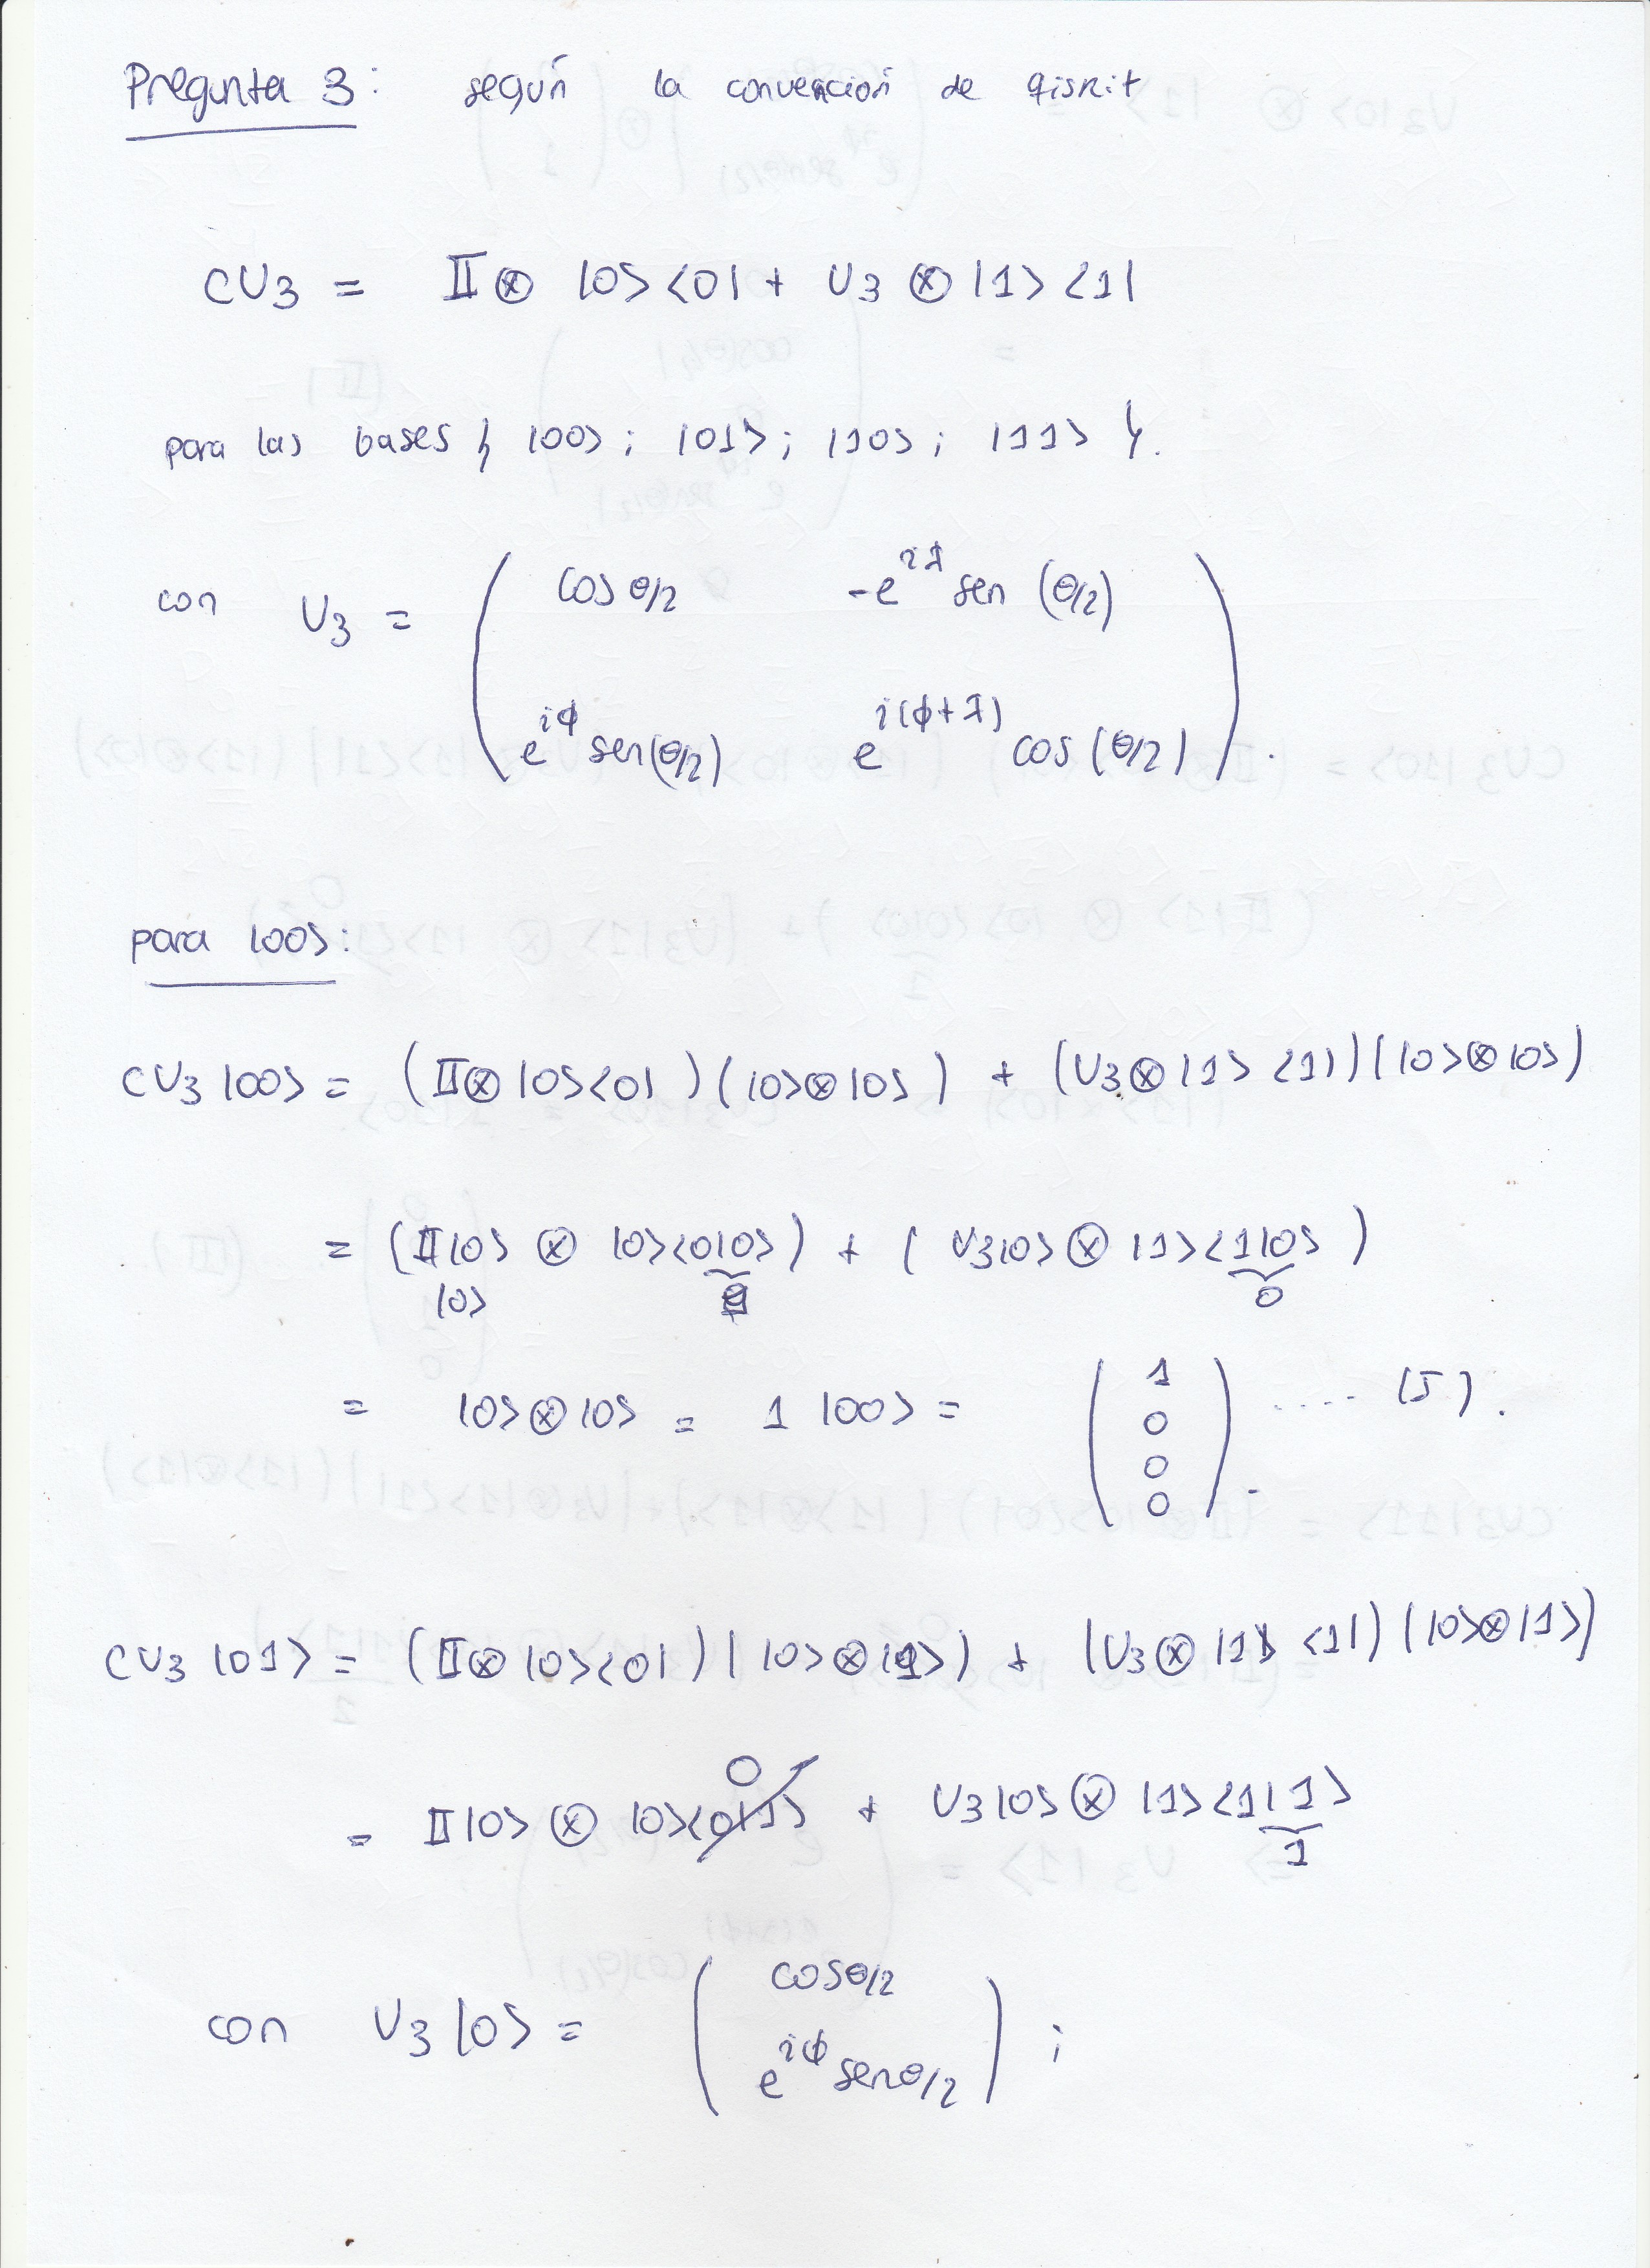 Pregunta 3: según la convención de qiskit
CU3 = II ⊗ |0><0| + U3 ⊗ |1><1|
para las bases { |00>; |01>; |10>; |11> }.
con U3 = ( cos θ/2 -e^{iλ} sen (θ/2)
e^{iϕ} sen(θ/2) e^{i(ϕ+λ)} cos (θ/2) ).
para |00>:
CU3 |00> = (II ⊗ |0><0|)(|0>⊗|0>) + (U3⊗|1><1|)(|0>⊗|0>)
= (II|0> ⊗ |0><0|0>) + ( U3|0> ⊗ |1><1|0> )
|0> 0
= |0>⊗|0> = 1 |00> = ( 1 0 0 0 ). .... (I).
CU3 |01> = (II⊗|0><0|)(|0>⊗|1>) + (U3⊗|1><1|)(|0>⊗|1>)
= II|0> ⊗ |0><0|1> 0 + U3|0> ⊗ |1><1|1>
1
con U3|0> = ( cosθ/2
e^{iϕ} senθ/2 ) ;